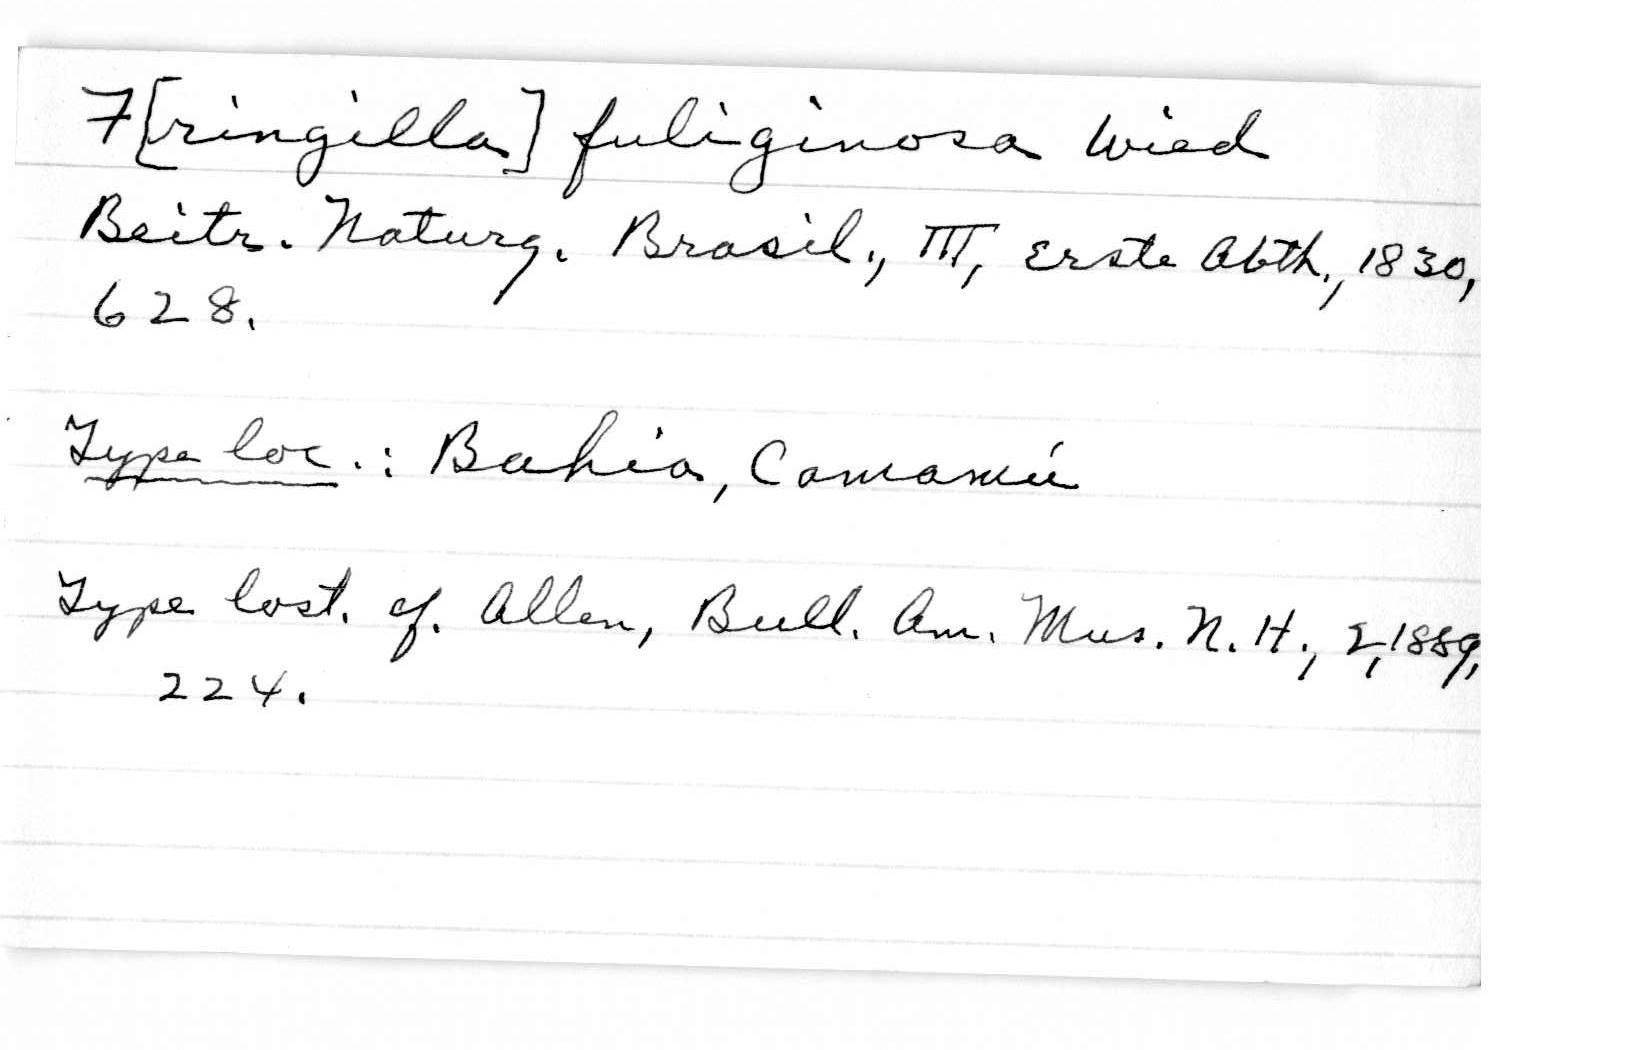 F[ringilla] fuliginosa Wied
Beitr. Naturg. Brasil., III, Erste Abth., 1830,
628.
Type loc.: Bahia, Camamú
Type lost. cf. Allen, Bull. Am. Mus. N. H., 2, 1889,
224.